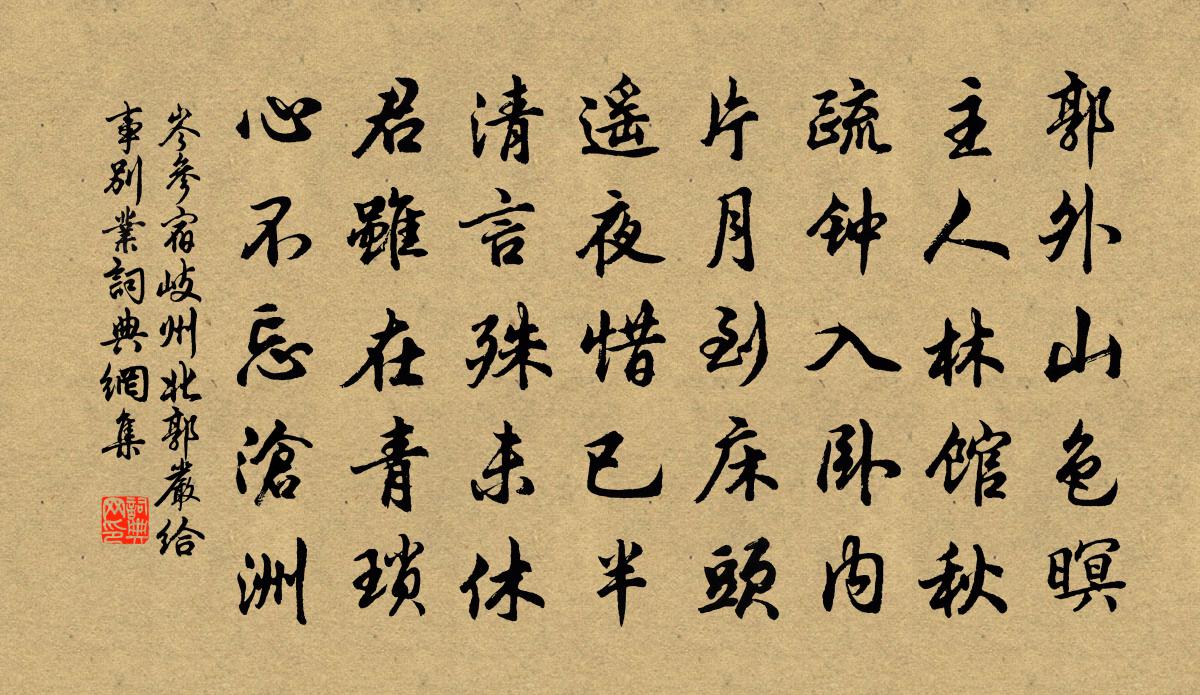 郭外山色暝
主人林馆秋
疏钟入卧内
片月到床頭
遥夜惜已半
清言殊未休
君雖在青瑣
心不忘滄洲
岑參宿岐州北郭嚴给
事別業詞典網集
詞典网印